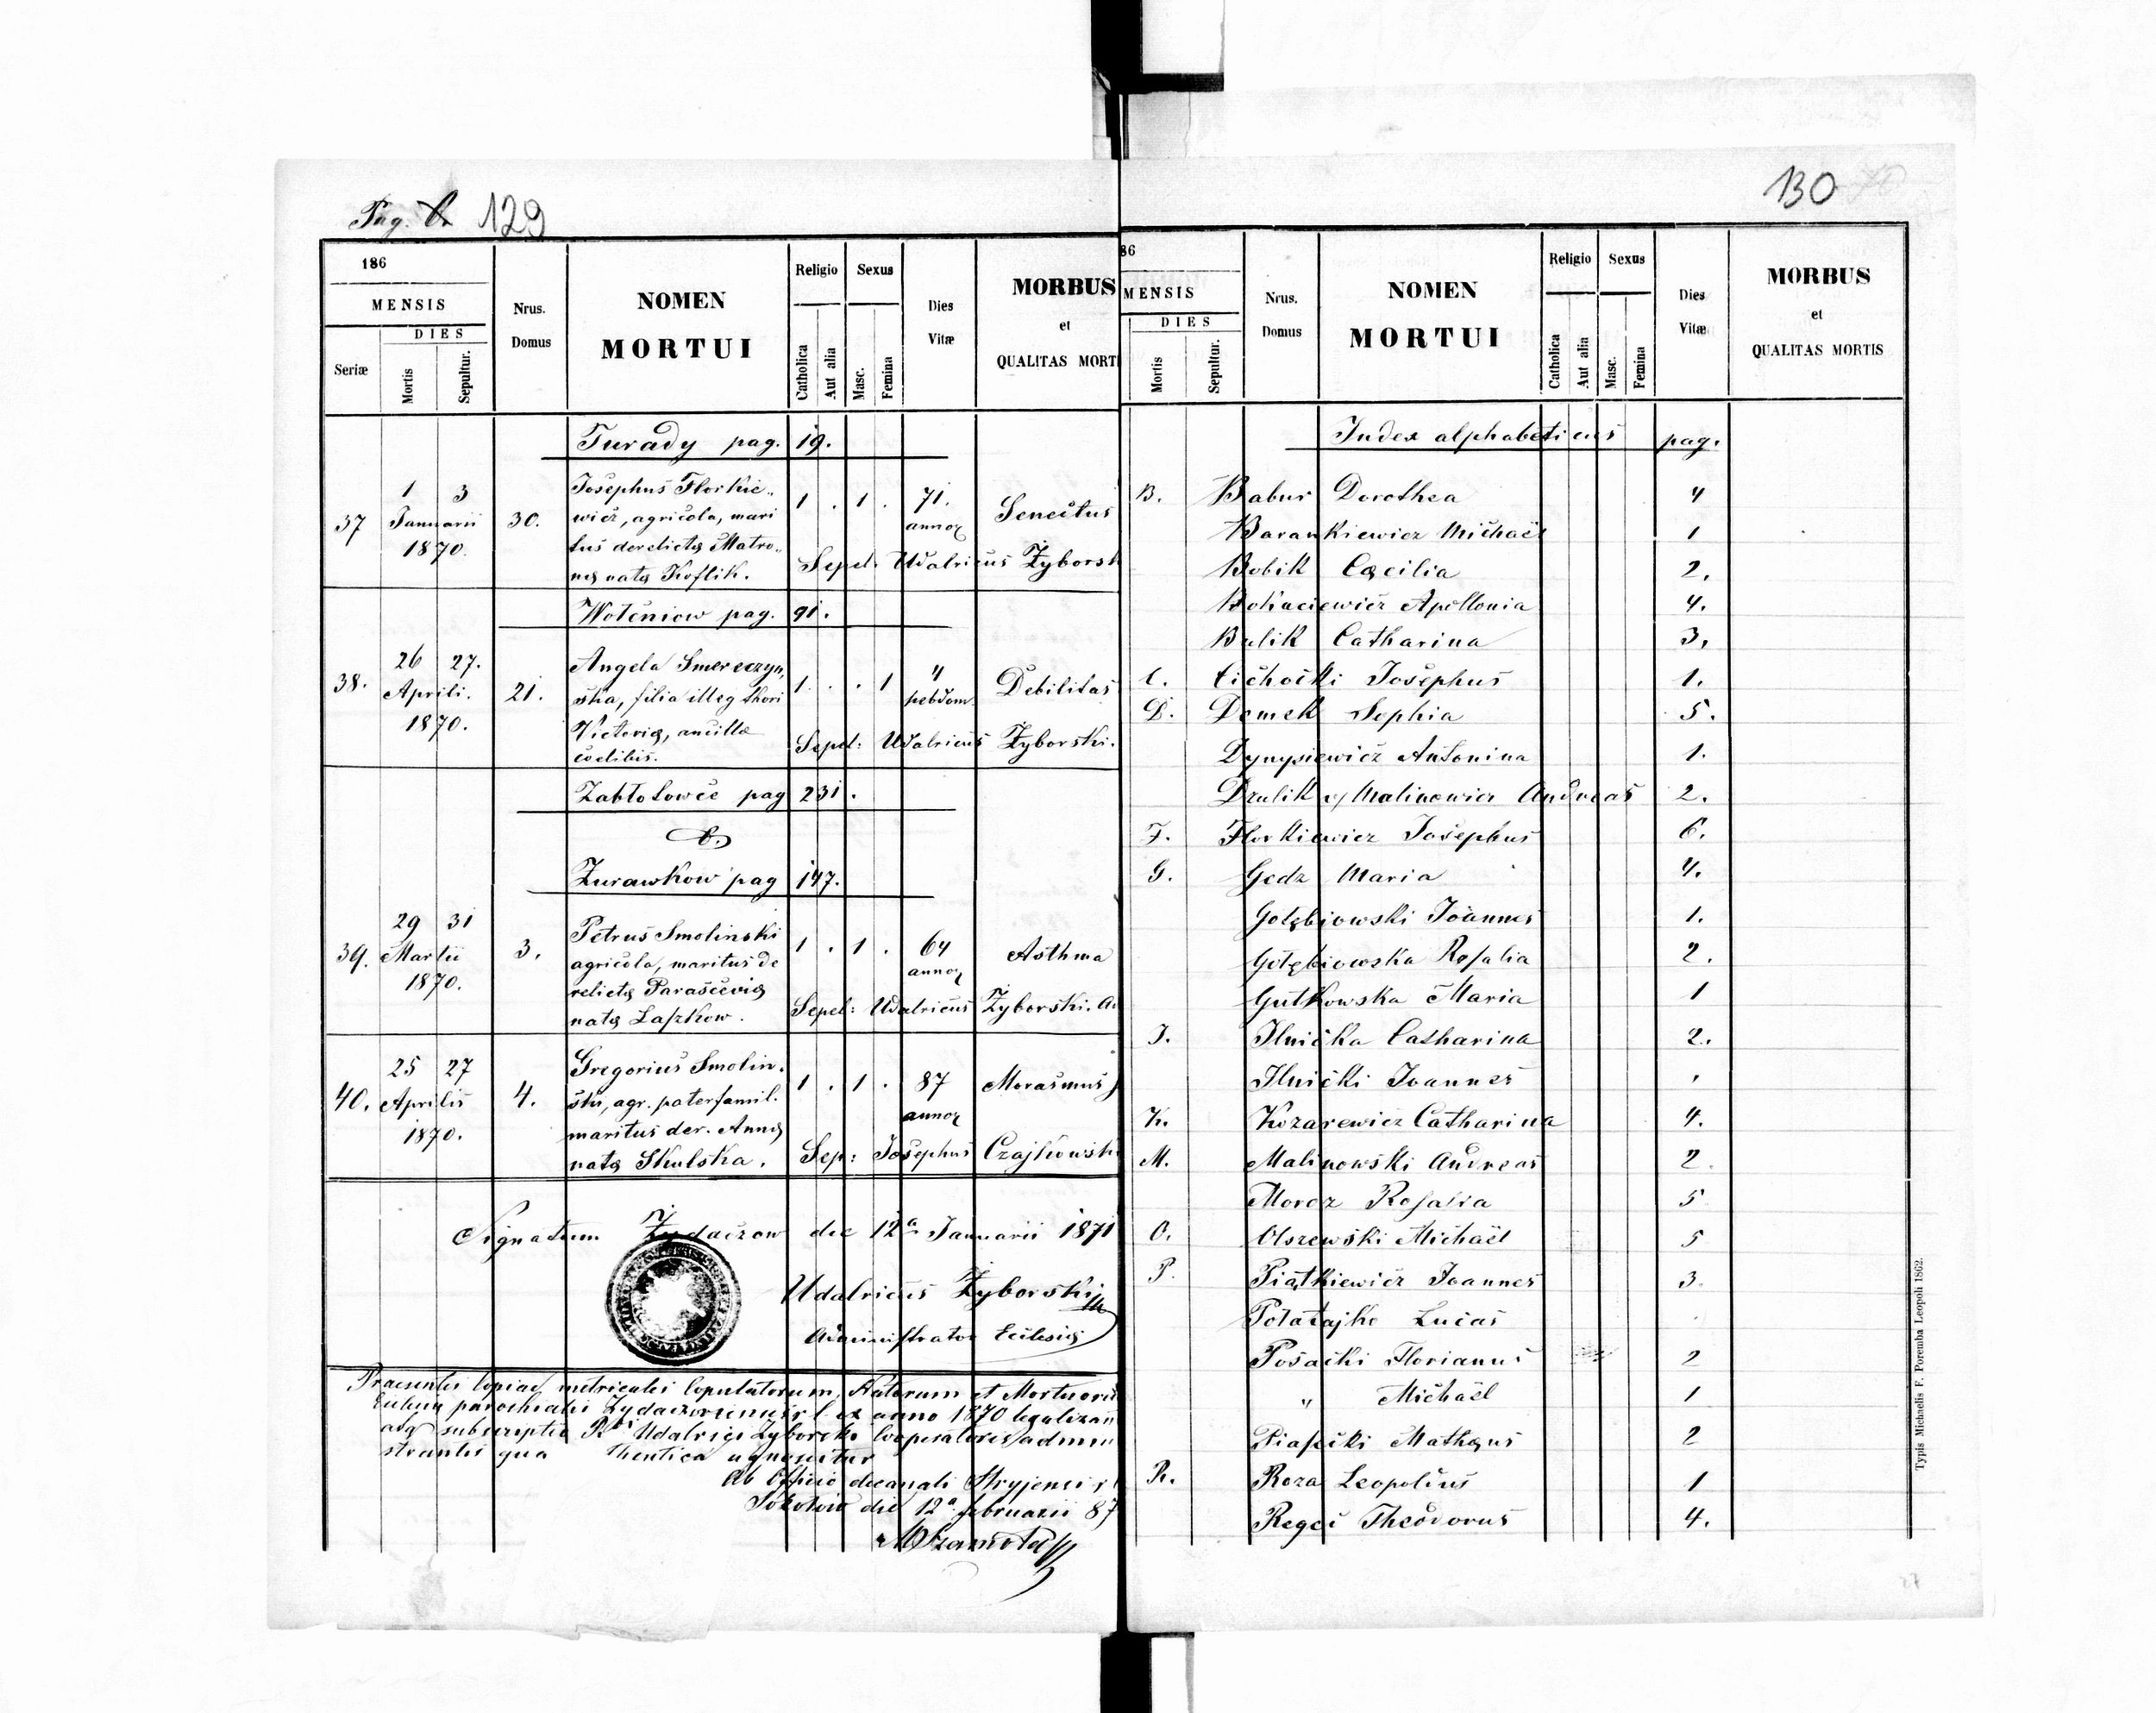 Pag. 129
186
MENSIS
DIES
Seriæ
Mortis
Sepultur.
Nrus.
Domus
NOMEN
MORTUI
Religio
Catholica
Aut alia
Sexus
Masc.
Femina
Dies
Vitæ
MORBUS
et
QUALITAS MORTI
Turady pag. 19.
37
1 3
Januarii
1870.
30.
Josephus Florkie„
wicz, agricola, mari
tus derelictę Matro„
nę natę Koflik.
1 . 1 .
71.
annor
Senectus
Sepel. Udalricus Żyborsk
Wolcniow pag. 91.
38.
26 27.
Aprili.
1870.
21.
Angela Smereczyn„
ska, filia illeg thori
Victorię, ancillæ
cœlibis.
1 . . 1
4
hebdom.
Debilitas
Sepel: Udalricus Żyborski.
Zabłotowce pag 231.
Zurawkow pag 147.
39.
29 31
Martii
1870.
3.
Petrus Smolinski
agricola, maritus de
relictę Parascevię
natę Laszkow.
1 . 1 .
64
annor
Asthma
Sepel: Udalricus Żyborski. Ad
40.
25 27
Aprilis
1870.
4.
Gregorius Smolin.
ski, agr. paterfamil.
maritus der. Annę
natę Skulska.
1 . 1 .
87
annor
Marasmus
Sep: Josephus Czajkowski
Signatum Żydaczow die 12a Januarii 1871
Udalricus Żyborski
Administrator Eclesię
Praesentes copiae metricales Copulatorum, Natorum et Mortuoru
Eccliae parochialis Zydaczoviensis r. l. ex anno 1870 legalizan
adq subscriptio Rdi Udalrici Zyborski Cooperatoris admini
strantis qua thentica agnoscitur
Ab Officio decanali Stryjensi r l
die 12a februarii 87
130
86
MENSIS
DIES
Mortis
Sepultur.
Nrus.
Domus
NOMEN
MORTUI
Religio
Catholica
Aut alia
Sexus
Masc.
Femina
Dies
Vitæ
MORBUS
et
QUALITAS MORTIS
Index alphabeticus pag.
B. Babur Dorothea 4
Barankiewicz Michaël 1
Bobik Cęcilia 2.
Bohaciewicz Apollonia 4.
Bulik Catharina 3.
C. Cichocki Josephus 1.
D. Domek Sophia 5.
Dynysiewicz Antonina 1.
Drulik v/ Malinowicz Andreas 2.
F. Florkiewicz Josephus 6.
G. Gedz Maria 4.
Gołębiowski Joannes 1.
Gołębiowska Rosalia 2.
Gutkowska Maria 1
I. Ilnicka Catharina 2.
Ilnicki Joannes
K. Kozarewicz Catharina 4.
M. Malinowski Andreas 2.
Moroz Rosalia 5
O. Olszewski Michaël 5
P. Piątkiewicz Joannes 3.
Potatajko Lucas
Posacki Florianus 2
„ Michaël 1
Piasecki Mathęus 2
R. Roza Leopoldus 1
Regec Theodorus 4.
Typis Michaelis F. Poremba Leopoli 1862.
27